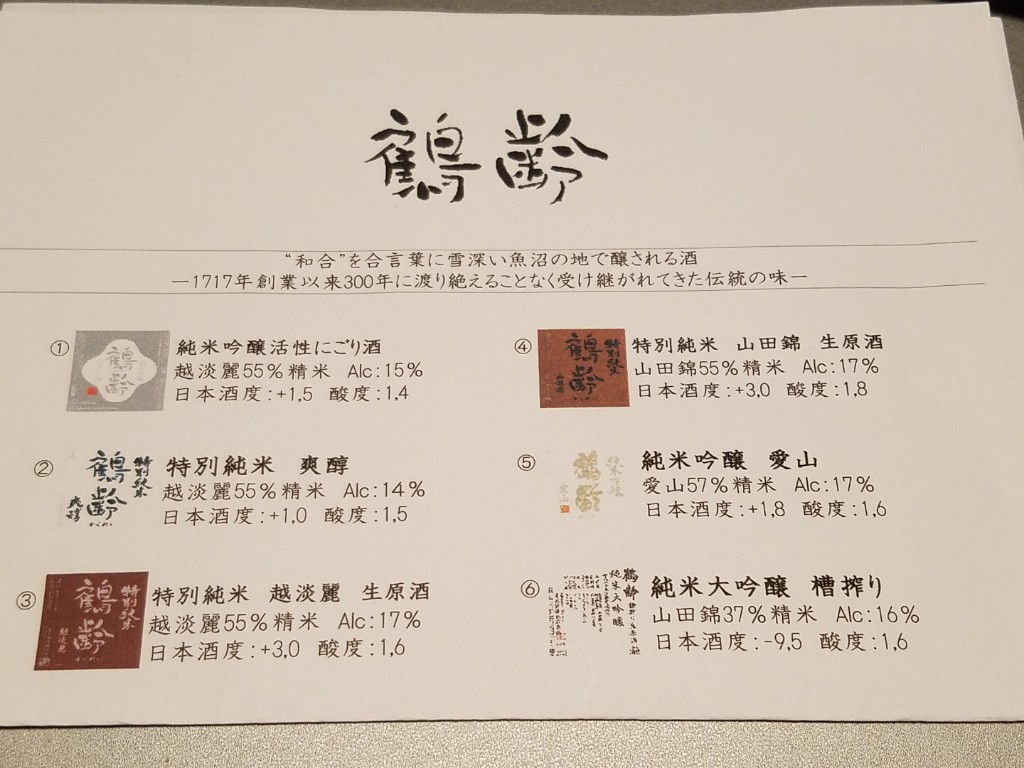 鶴齢
“和合”を合言葉に雪深い魚沼の地で醸される酒
―1717年創業以来300年に渡り絶えることなく受け継がれてきた伝統の味―
① 鶴齢
純米吟醸活性にごり酒
越淡麗55%精米 Alc:15%
日本酒度:+1.5 酸度:1.4
② 鶴齢 特別純米 爽醇
特別純米 爽醇
越淡麗55%精米 Alc:14%
日本酒度:+1.0 酸度:1.5
③ 鶴齢 特別純米 越淡麗
特別純米 越淡麗 生原酒
越淡麗55%精米 Alc:17%
日本酒度:+3.0 酸度:1.6
④ 鶴齢 特別純米 山田錦
特別純米 山田錦 生原酒
山田錦55%精米 Alc:17%
日本酒度:+3.0 酸度:1.8
⑤ 鶴齢 純米吟醸 愛山
純米吟醸 愛山
愛山57%精米 Alc:17%
日本酒度:+1.8 酸度:1.6
⑥ 鶴齢 純米大吟醸
純米大吟醸 槽搾り
山田錦37%精米 Alc:16%
日本酒度:-9.5 酸度:1.6